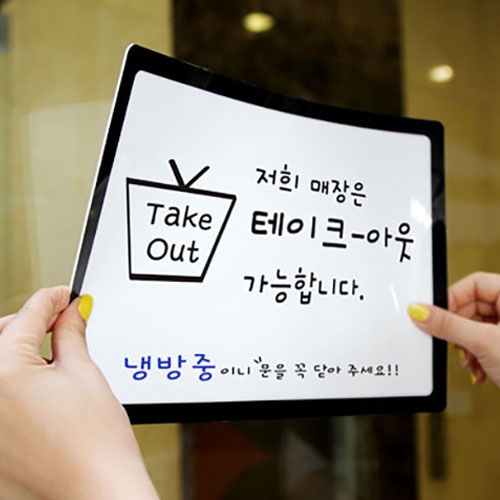 Take
Out
저희 매장은
테이크-아웃
가능합니다.
냉방중이니 "문을 꼭 닫아 주세요!!